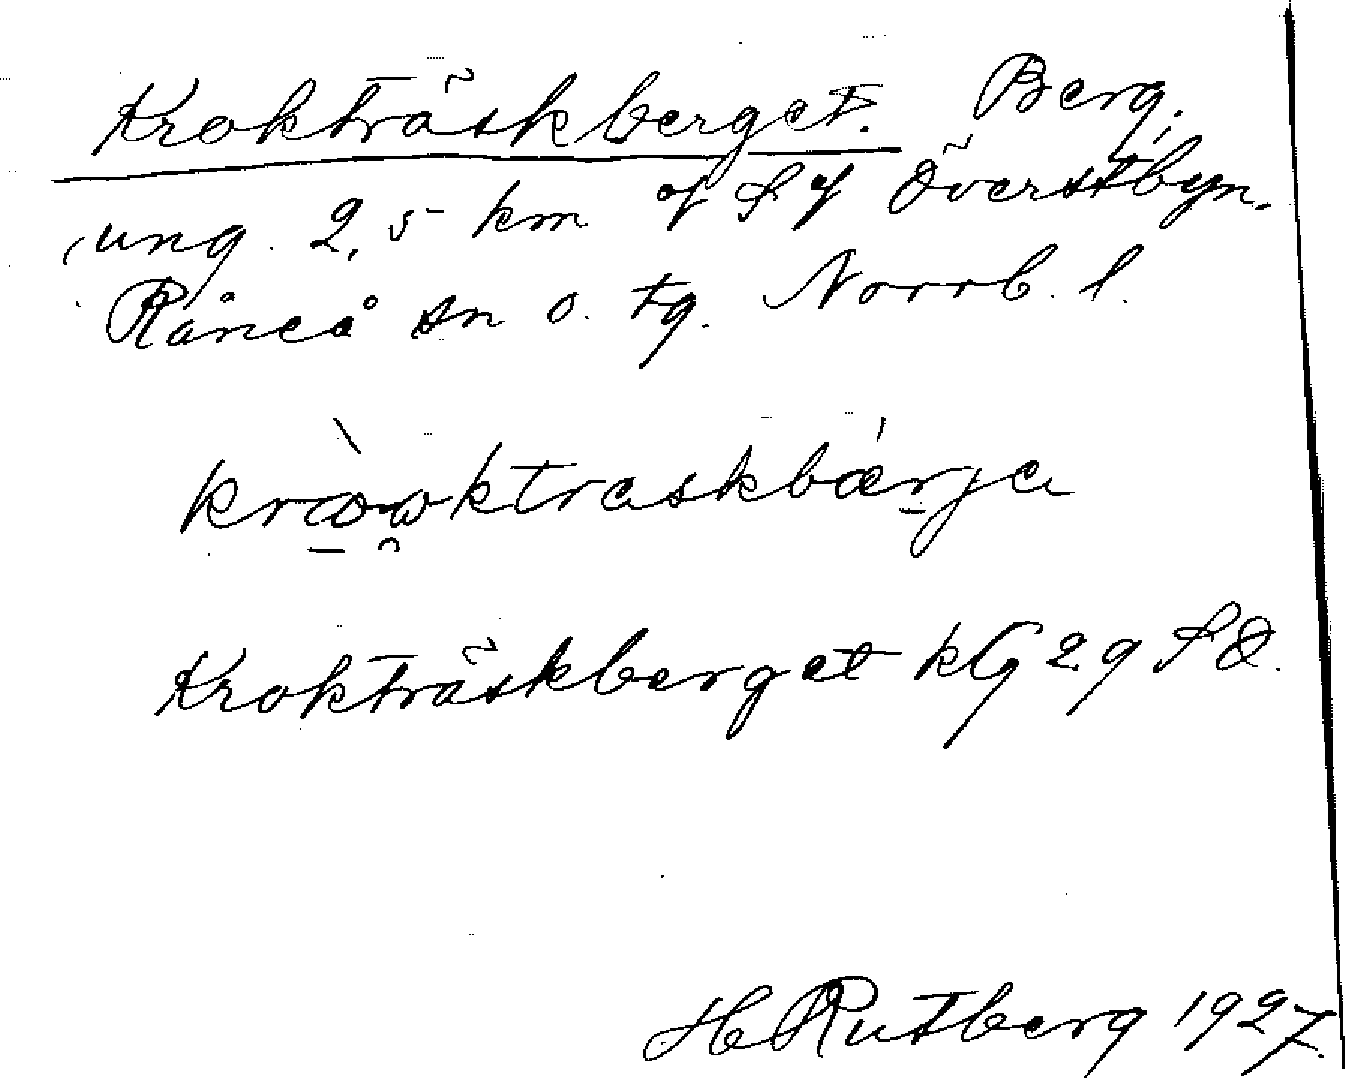 Krokträskberget. Berg,
ung. 2,5 km of S of Överstbyn.
Råneå sn o. tg. Norrb. l.
Krokträskberget kG 29 SO.
H Rutberg 1927.